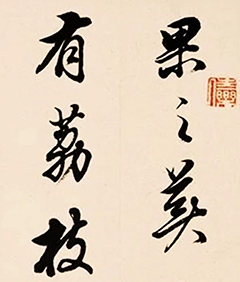 果之美
有荔枝